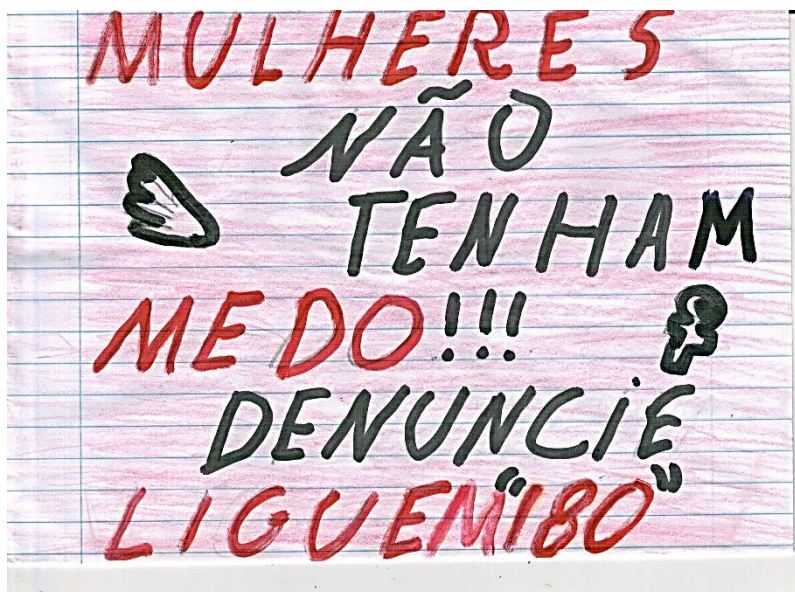 MULHERES
NÃO
TENHAM
MEDO!!!
DENUNCIE
LIGUEM "180"